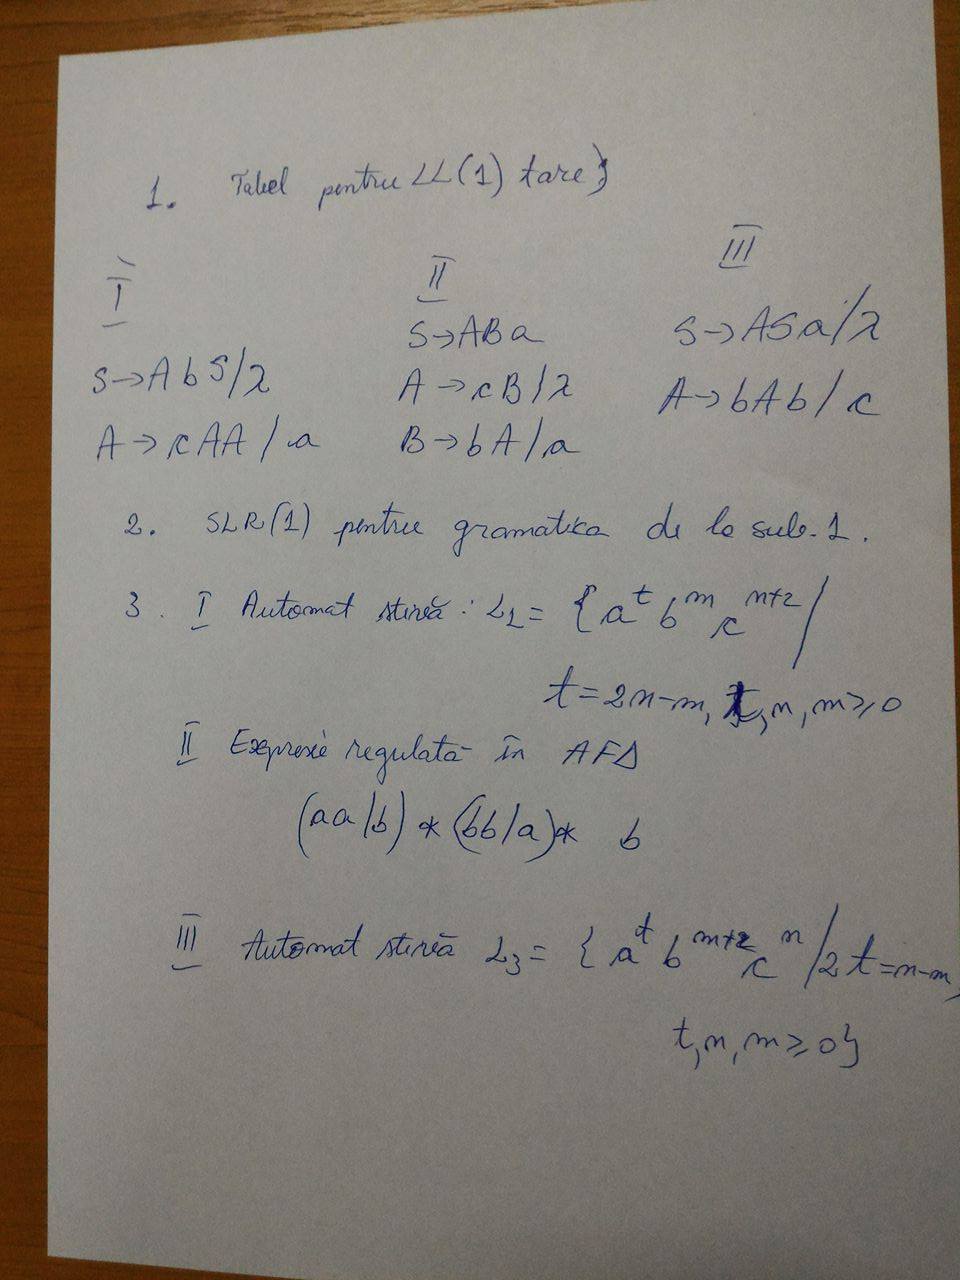 1. Tabel pentru LL(1) tare}
I II III
S→AbS/λ S→ABa S→ASa/λ
A→cAA/a A→cB/λ A→bAb/c
B→bA/a
2. SLR(1) pentru gramatica de la sub. 1.
3. I Automat stivă: L₁= {a^t b^m c^{n+2} /
t=2n-m, t,n,m≥0
II Expresie regulată în AFD
(aa/b)*(bb/a)* b
III Automat stivă L₃= {a^t b^{m+2} c^n /2t=n-m,
t,n,m≥0}